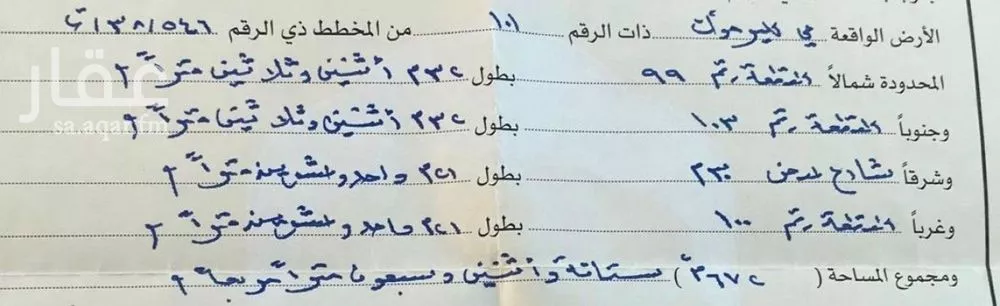 الأرض الواقعة في ذات الرقم ١٠١ من المخطط ذي الرقم ٥٤٦/٣٨/ت
المحدودة شمالاً القطعة رقم ٩٩ بطول ٣٢م أثنين وثلاثين متراً
وجنوباً القطعة رقم ١٠٣ بطول ٣٢م أثنين وثلاثين متراً
وشرقاً شارع عرض ٣٠م بطول ٢١م واحد وعشرين متراً
وغرباً القطعة رقم ١٠٠ بطول ٢١م واحد وعشرين متراً
ومجموع المساحة ( ٦٧٢م٢ ) ستمائة وأثنين وسبعون متراً مربعاً
عقار
sa.aqar.fm